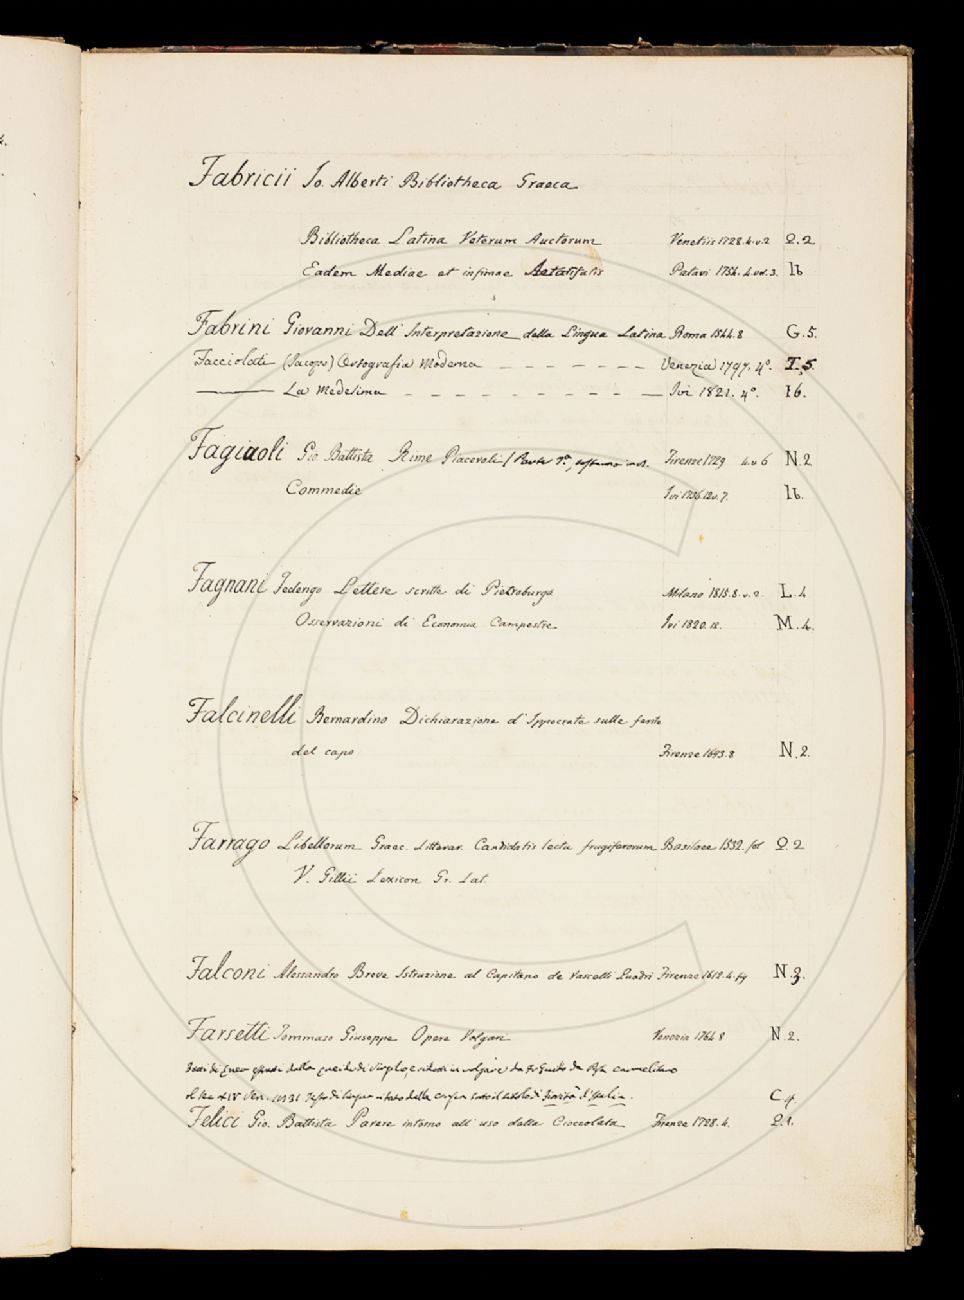 Fabricii Jo. Alberti Bibliotheca Graeca
Bibliotheca Latina Veterum Auctorum Venetiis 1728. 4. v. 2 Q. 2
Eadem Mediae et infimae Aetatis Patavi 1754. 4. vol. 3. Ib
Fabrini Giovanni Dell' Interpretazione della Lingua Latina Roma 1544. 8 G. 5.
Facciolati (Jacopo) Ortografia Moderna Venezia 1797. 4º. T. 5.
La Medesima Ivi 1821. 4º. Ib.
Fagiuoli Gio. Battista Rime Piacevoli Firenze 1729 4. v 6 N. 2
Commedie Ivi 1736. 12 v. 7. Ib.
Fagnani Federigo Lettere scritte di Pietroburgo Milano 1815. 8. v. 2. L. 4
Osservazioni di Economia Campestre Ivi 1820. 12. M. 4.
Falcinelli Bernardino Dichiarazione d'Ippocrate sulle ferite
del capo Firenze 1693. 8 N. 2.
Farrago Libellorum Graec. Litterar. Candidatis lectu frugiferorum Basileae 1532. fol Q. 2
V. Gillii Lexicon Gr. Lat.
Falconi Alessandro Breve Istruzione al Capitano de Vascelli Quadri Firenze 1612. 4. fig N. 3.
Farsetti Tommaso Giuseppe Opere Volgari Venezia 1764. 8 N. 2.
Fatti di Enea volgare da Fr Guido da Pisa carmelitano
C 4.
Felici Gio. Battista Parere intorno all' uso della Cioccolata Firenze 1728. 4. Q. 1.